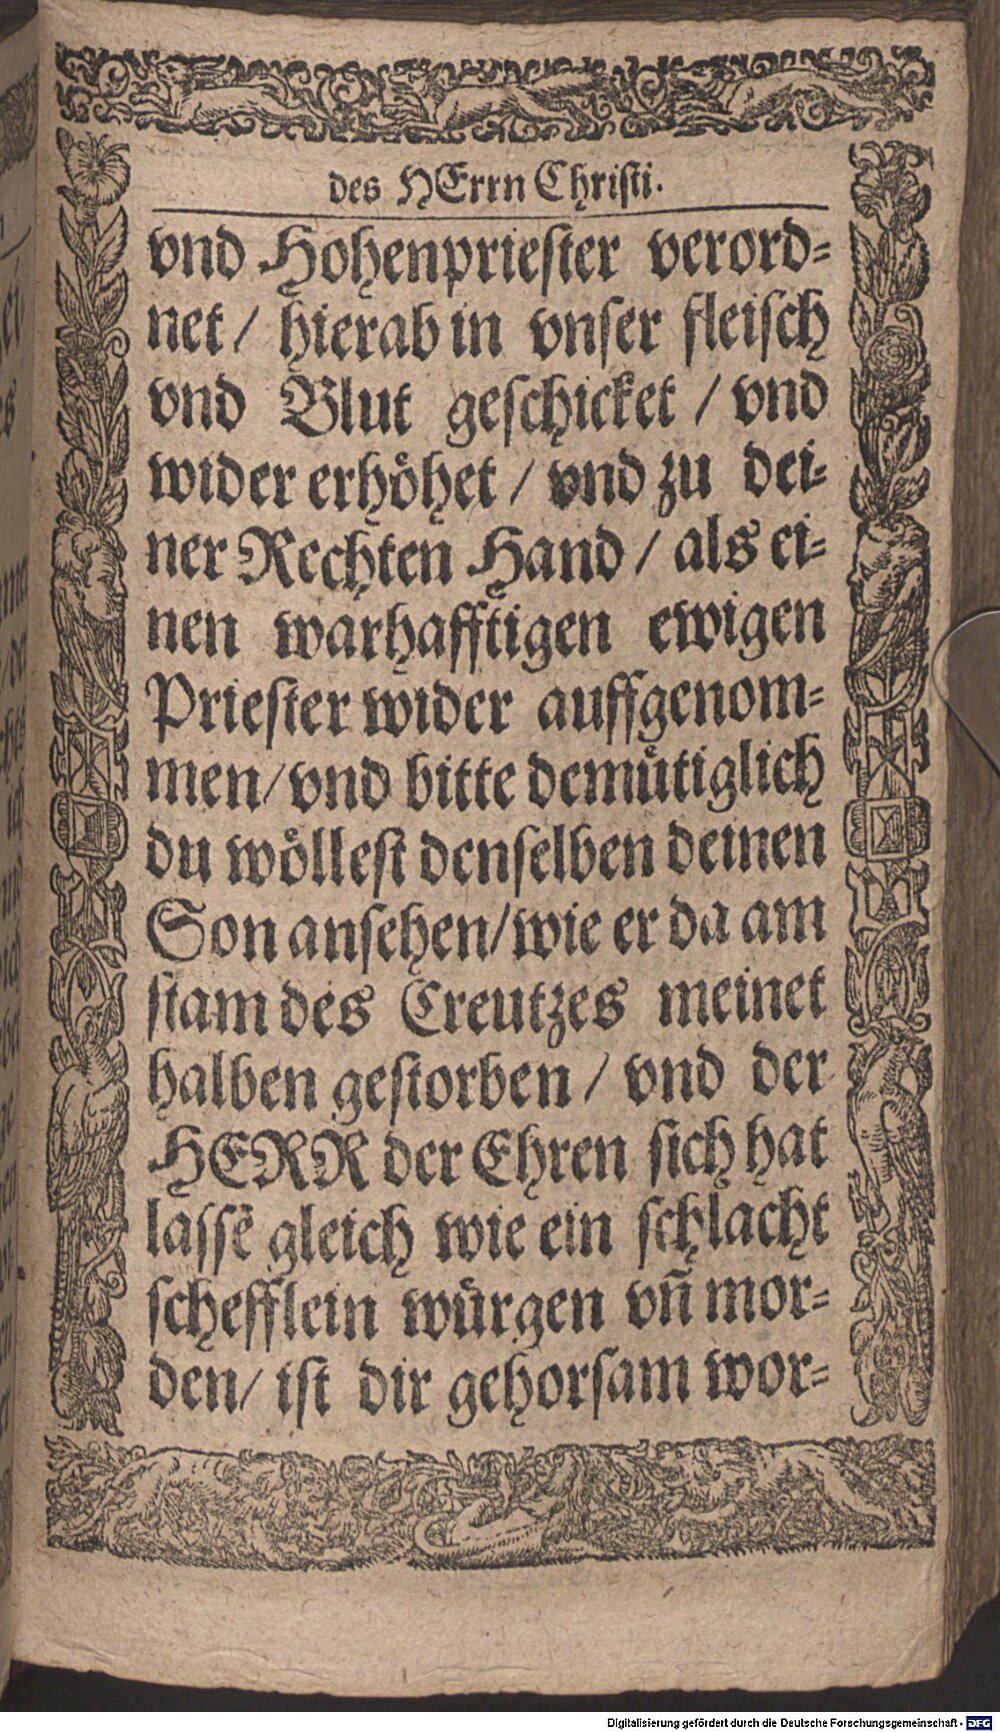 des HErrn Christi.
vnd Hohenpriester verord=
net / hierab in vnser fleisch
vnd Blut geschicket / vnd
wider erhöhet / vnd zu dei=
ner Rechten Hand / als ei=
nen warhafftigen ewigen
Priester wider auffgenom=
men / vnd bitte demütiglich
du wöllest denselben deinen
Son ansehen / wie er da am
stam des Creutzes meinet
halben gestorben / vnd der
HERR der Ehren sich hat
lassē gleich wie ein schlacht
schefflein würgen vñ mor=
den / ist dir gehorsam wor=
Digitalisierung gefördert durch die Deutsche Forschungsgemeinschaft - DFG